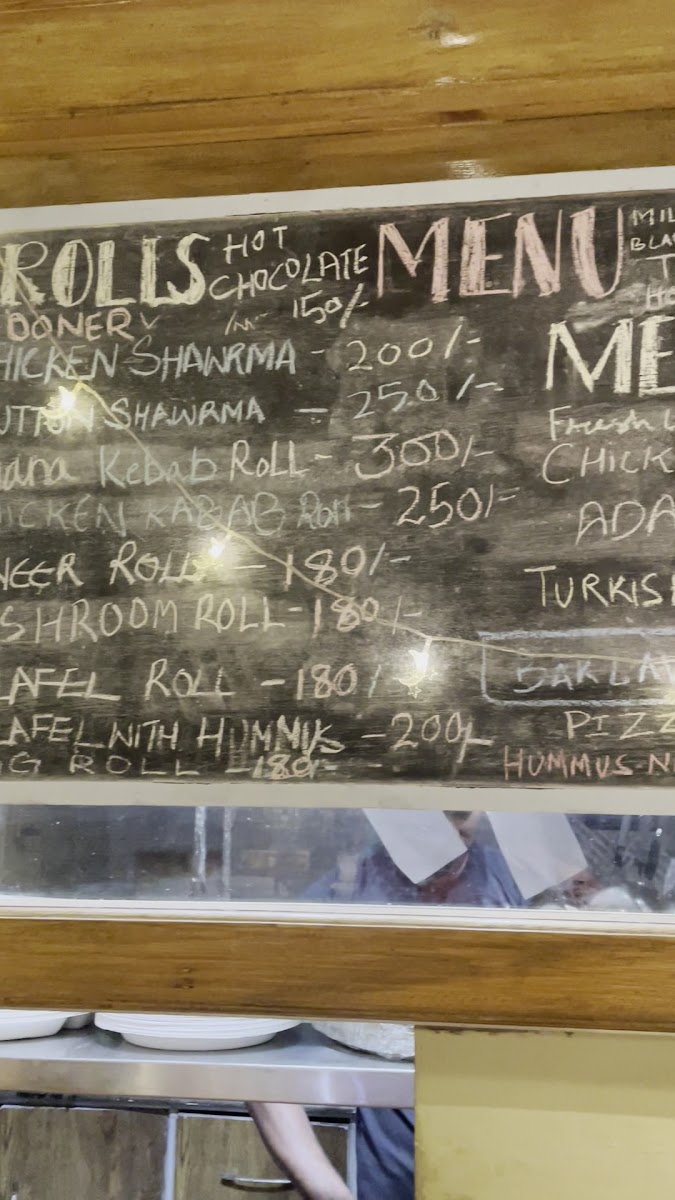 ROLLS
HOT
CHOCOLATE
150/-
MENU
MIL
BLA
T
HO
DONER
HICKEN SHAWRMA - 200/-
UTTON SHAWRMA - 250/-
dana Kebab ROLL - 300/-
HICKEN KABAB Roll - 250/-
NEER ROLL - 180/-
SHROOM ROLL - 180/-
LAFEL ROLL - 180/
LAFEL WITH HUMMUS - 200/-
G ROLL - 180/-
ME
Fresh
CHICK
ADA
TURKIS
BAKLAV
PIZZ
HUMMUS